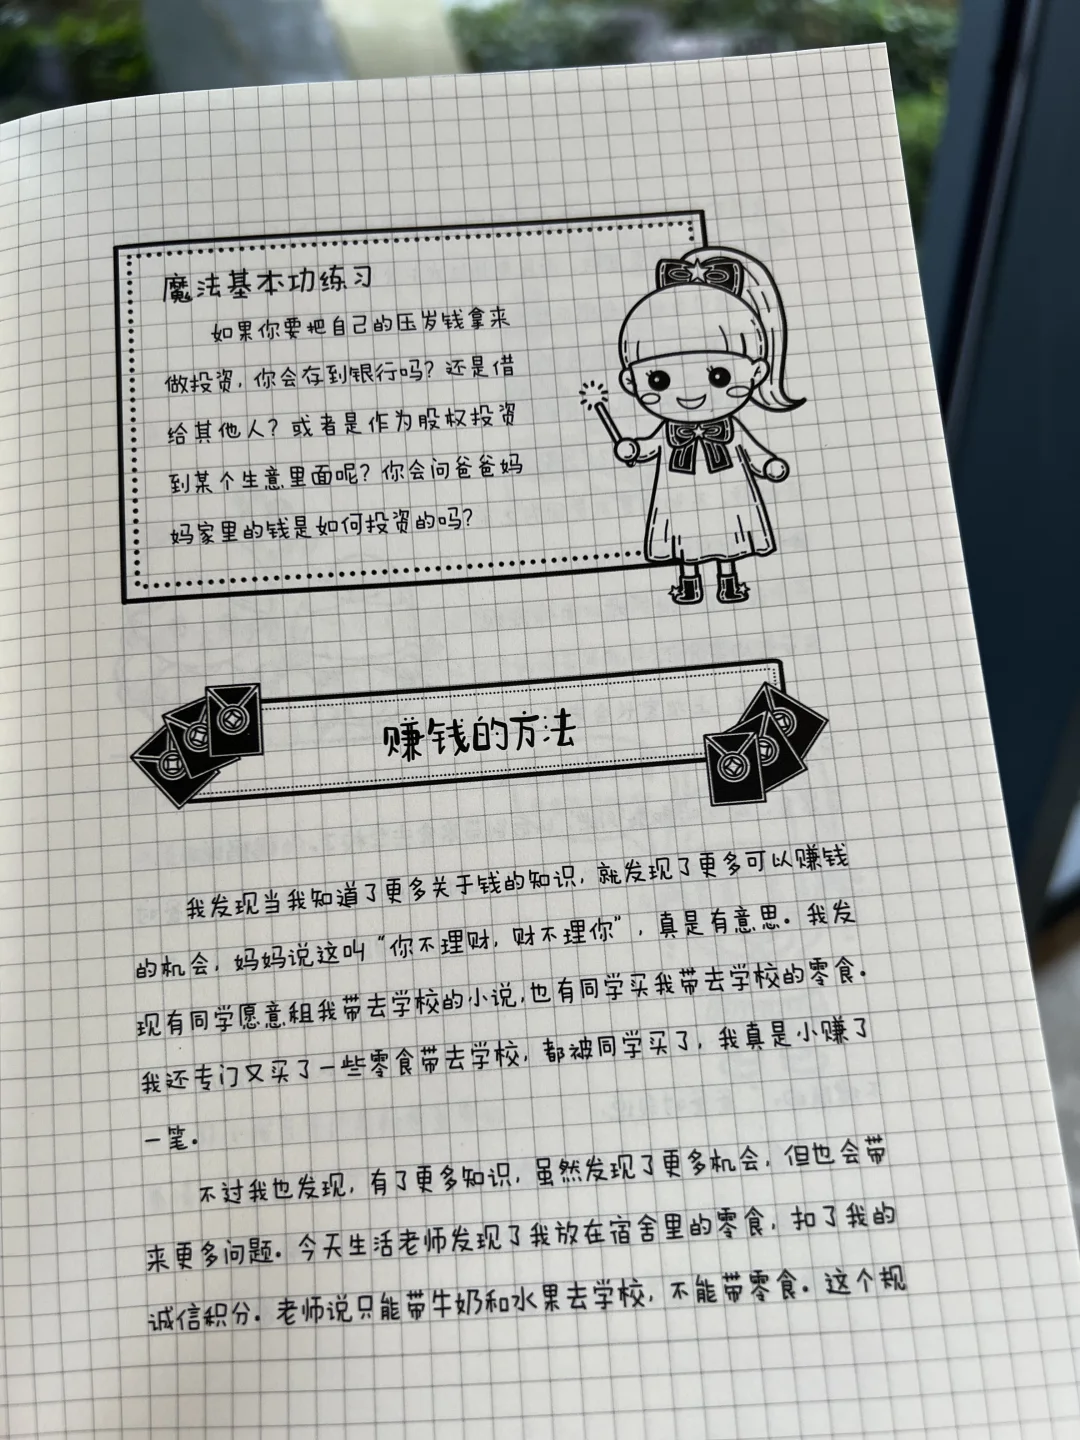 魔法基本功练习
如果你要把自己的压岁钱拿来
做投资，你会存到银行吗？还是借
给其他人？或者是作为股权投资
到某个生意里面呢？你会问爸爸妈
妈家里的钱是如何投资的吗？
赚钱的方法
我发现当我知道了更多关于钱的知识，就发现了更多可以赚钱
的机会，妈妈说这叫“你不理财，财不理你”，真是有意思。我发
现有同学愿意租我带去学校的小说，也有同学买我带去学校的零食。
我还专门又买了一些零食带去学校，都被同学买了，我真是小赚了
一笔。
不过我也发现，有了更多知识，虽然发现了更多机会，但也会带
来更多问题。今天生活老师发现了我放在宿舍里的零食，扣了我的
诚信积分。老师说只能带牛奶和水果去学校，不能带零食。这个规